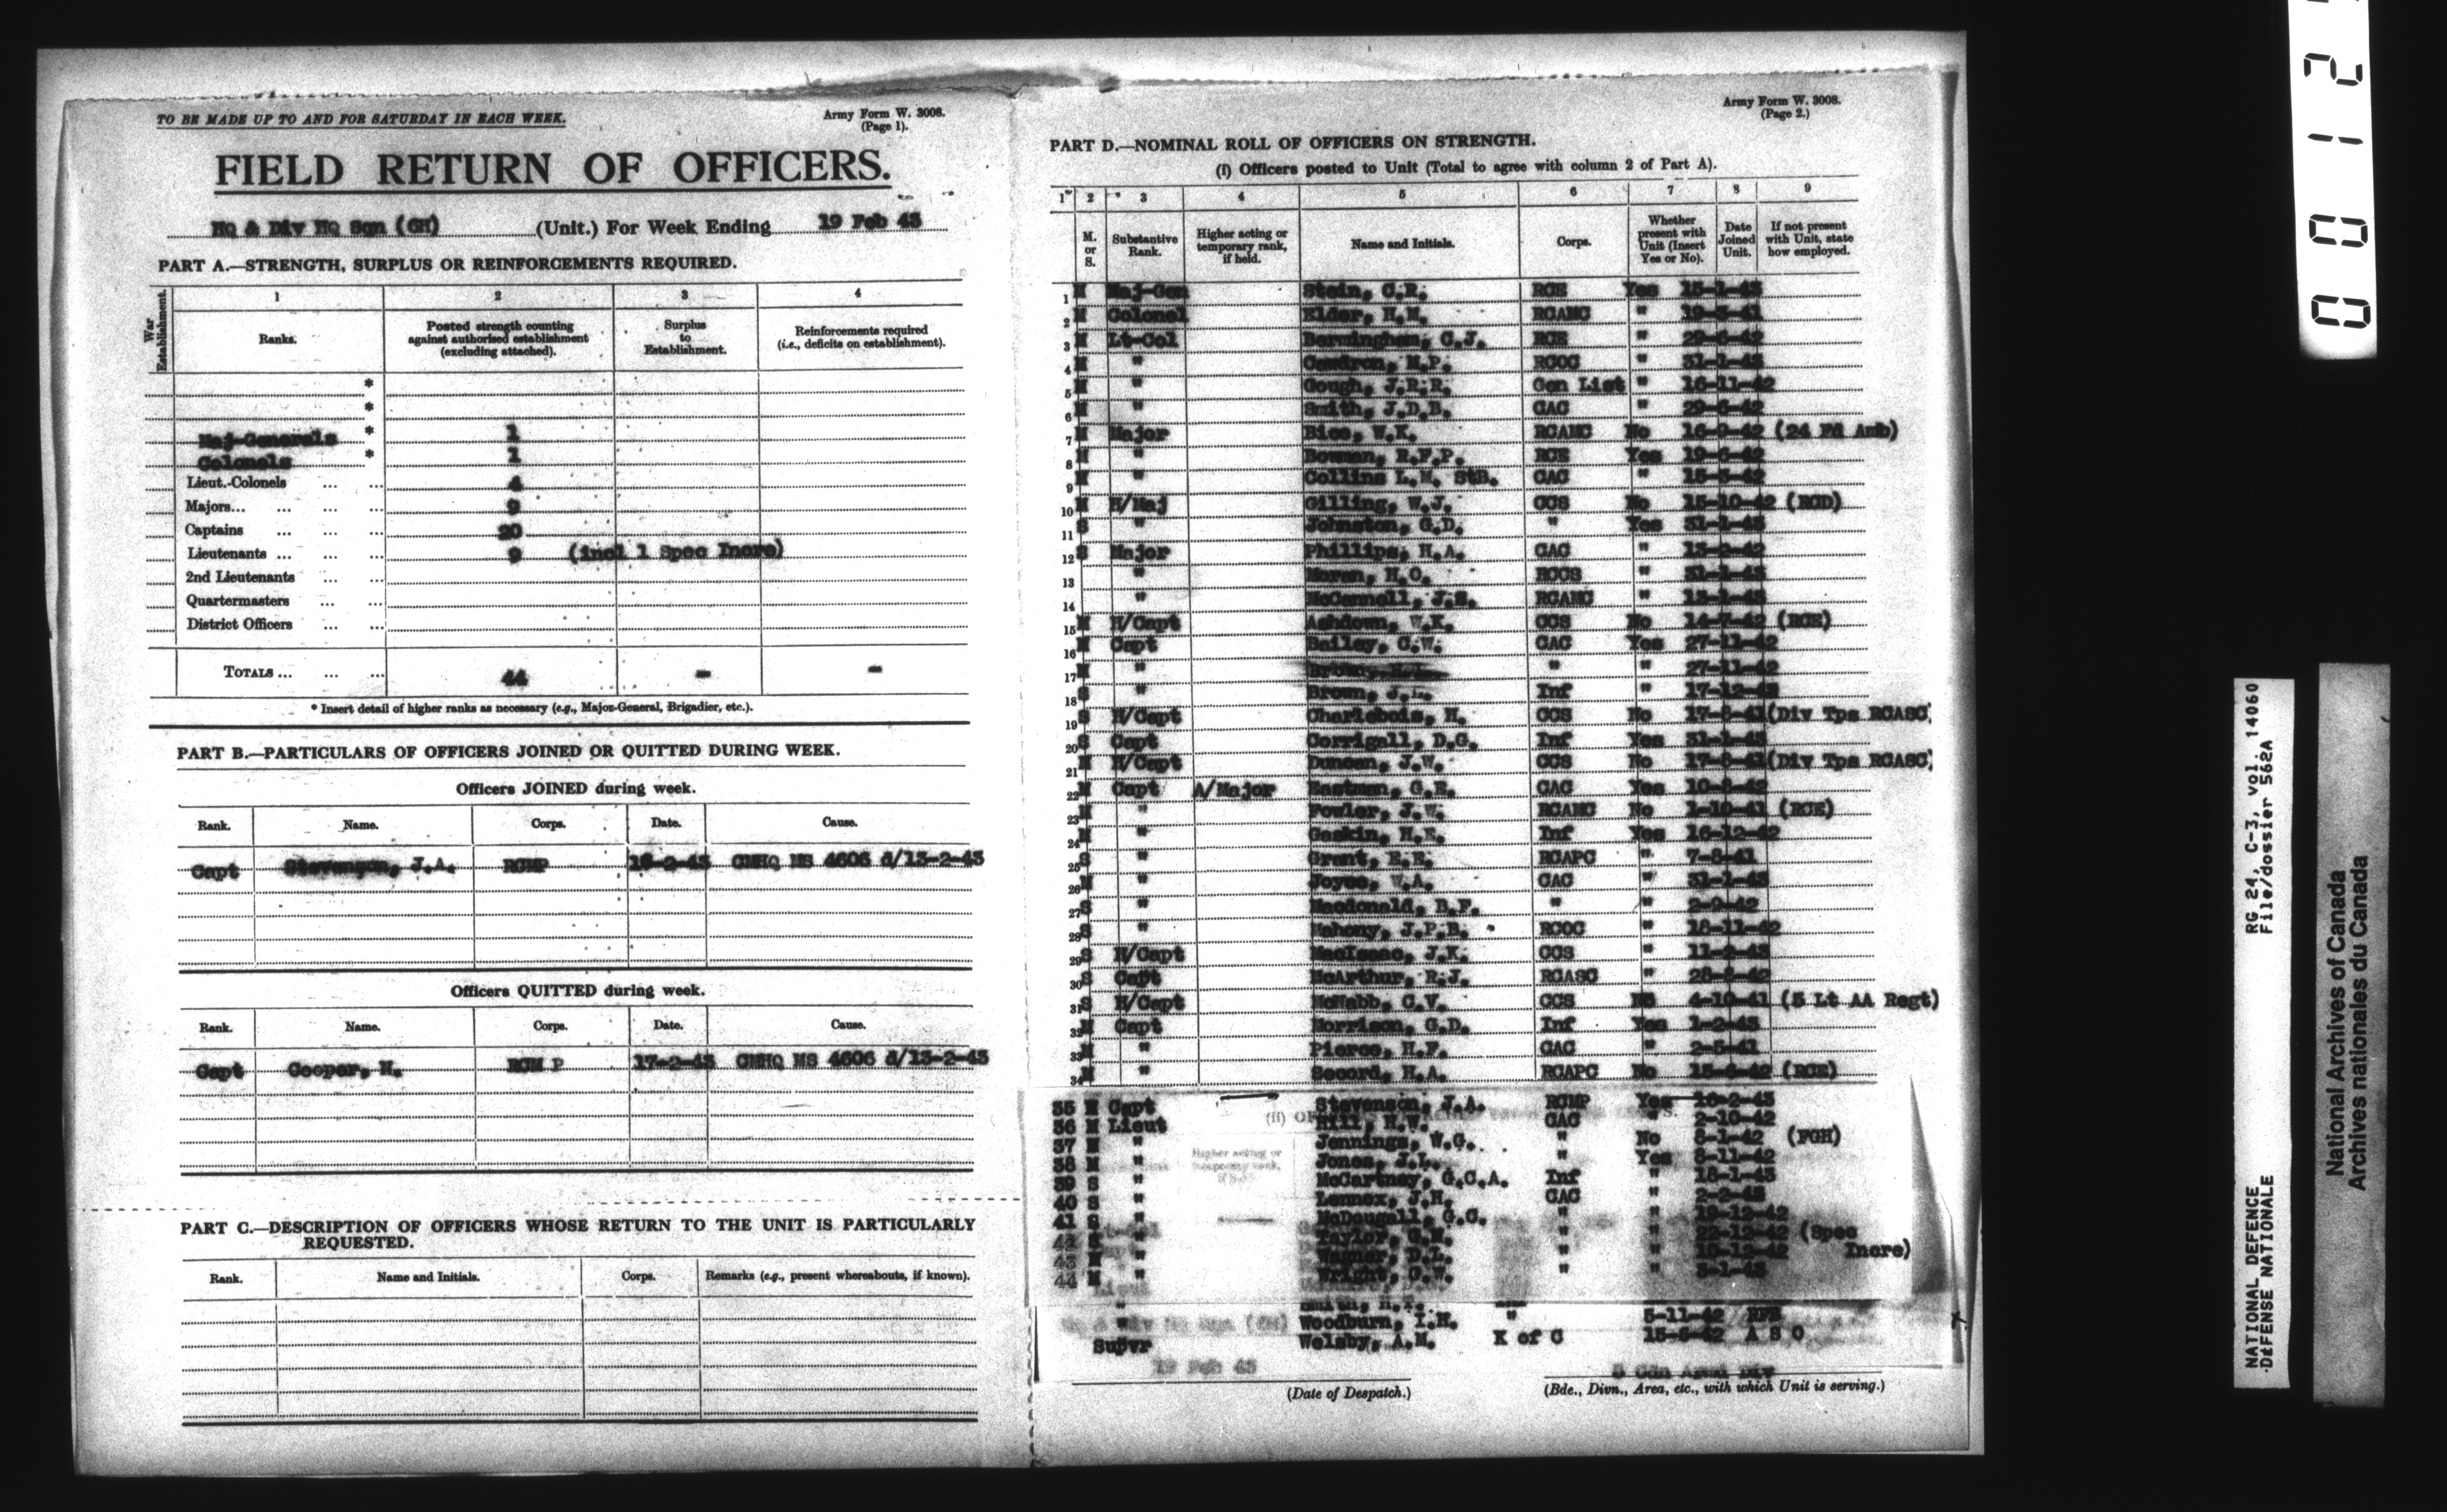 TO BE MADE UP TO AND FOR SATURDAY IN EACH WEEK.
Army Form W. 3008.
(Page 1).
FIELD RETURN OF OFFICERS.
HQ & Div HQ Sqn (GH) (Unit.) For Week Ending 19 Feb 43
PART A.—STRENGTH, SURPLUS OR REINFORCEMENTS REQUIRED.
War Establishment.
1 2 3 4
Ranks. Posted strength counting against authorised establishment (excluding attached). Surplus to Establishment. Reinforcements required (i.e., deficits on establishment).
*
*
Maj-Generals * 1
Colonels * 1
Lieut.-Colonels ... ... 4
Majors... ... ... ... 9
Captains ... ... ... 20
Lieutenants ... ... ... 9 (incl 1 Spec Incre)
2nd Lieutenants ... ...
Quartermasters ... ...
District Officers ... ...
TOTALS ... ... ... 44 - -
* Insert detail of higher ranks as necessary (e.g., Major-General, Brigadier, etc.).
PART B.—PARTICULARS OF OFFICERS JOINED OR QUITTED DURING WEEK.
Officers JOINED during week.
Rank. Name. Corps. Date. Cause.
Capt Stevenson, J.A. RCMP 16-2-43 CMHQ MS 4606 d/13-2-43
Officers QUITTED during week.
Rank. Name. Corps. Date. Cause.
Capt Cooper, N. RCM P 17-2-43 CMHQ MS 4606 d/13-2-43
PART C.—DESCRIPTION OF OFFICERS WHOSE RETURN TO THE UNIT IS PARTICULARLY
REQUESTED.
Rank. Name and Initials. Corps. Remarks (e.g., present whereabouts, if known).
Army Form W. 3008.
(Page 2.)
PART D.—NOMINAL ROLL OF OFFICERS ON STRENGTH.
(i) Officers posted to Unit (Total to agree with column 2 of Part A).
1 2 3 4 5 6 7 8 9
M. or S. Substantive Rank. Higher acting or temporary rank, if held. Name and Initials. Corps. Whether present with Unit (Insert Yes or No). Date Joined Unit. If not present with Unit, state how employed.
1 M Maj-Gen Stein, C.R. RCE Yes 15-1-43
2 M Colonel Elder, H.M. RCAMC " 19-5-41
3 M Lt-Col Bermingham, C.J. RCE " 29-6-42
4 M " M.P. RCOC " 31-1-43
5 M " Gough, J.R.R. Gen List " 16-11-42
6 M " Smith, J.D.B. CAC " 29-6-42
7 M Major Bice, W.K. RCAMC No 16-9-42 (24 Fd Amb)
8 M " Bowman, R.F.P. RCE Yes 19-6-42
9 M " Collins L.M. StB. CAC " 15-5-42
10 M H/Maj Gilling, W.J. CCS No 15-10-42 (RCD)
11 S " Johnston, G.D. " Yes 31-1-43
12 S Major Phillips, H.A. CAC " 13-2-42
13 " Moran, H.O. RCCS " 31-1-43
14 " McConnell, J.S. RCAMC " 13-1-43
15 M H/Capt Ashdown, W.K. CCS No 14-7-42 (RCE)
16 M Capt Bailey, C.W. CAC Yes 27-11-42
17 M " " " 27-11-42
18 S " Brown, J.L. Inf " 17-12-42
19 S H/Capt Charlebois, H. CCS No 17-8-41 (Div Tps RCASC)
20 S Capt Corrigall, D.G. Inf Yes 31-1-43
21 M H/Capt Duncan, J.W. CCS No 17-8-41 (Div Tps RCASC)
22 M Capt A/Major Eastman, G.R. CAC Yes 10-8-42
23 M " Fowler, J.W. RCAMC No 1-10-41 (RCE)
24 M " Gaskin, H.E. Inf Yes 16-12-42
25 S " Grant, E.E. RCAPC " 7-8-41
26 M " Joyce, W.A. CAC " 31-1-43
27 S " Macdonald, B.F. " " 2-9-42
28 S " Mahony, J.P.B. RCOC " 18-11-42
29 S H/Capt MacIsaac, J.K. CCS " 11-2-43
30 S Capt McArthur, R.J. RCASC " 28-8-42
31 S H/Capt McNabb, C.V. CCS No 4-10-41 (5 Lt AA Regt)
32 M Capt Morrison, G.D. Inf Yes 1-2-43
33 M " Pierce, H.F. CAC " 2-5-41
34 M " Secord, H.A. RCAPC No 15-6-42 (RCE)
35 M Capt Stevenson, J.A. RCMP Yes 16-2-43
36 M Lieut Hill, H.W. CAC " 2-10-42
37 M " Jennings, W.G. " No 8-1-42 (FGH)
38 M " Jones, J.L. " Yes 8-11-42
39 S " McCartney, G.C.A. Inf " 18-1-43
40 S " Lennox, J.H. CAC " 2-2-43
41 S " McDougall, G.C. " " 19-12-42
42 S " Taylor, G.M. " " 22-12-42 (Spec
43 M " Wagner, D.L. " " 10-12-42 Incre)
44 M " Wright, G.W. " " 3-1-43
Smith, H.T.
" Woodburn, I.H. " 5-11-42
Supvr Welsby, A.M. K of C 15-6-42 A S O
19 Feb 43 5 Cdn Armd Div
(Date of Despatch.) (Bde., Divn., Area, etc., with which Unit is serving.)
0012
NATIONAL DEFENCE RG 24, C-3, vol. 14060
DEFENSE NATIONALE File/dossier 562A
National Archives of Canada
Archives nationales du Canada